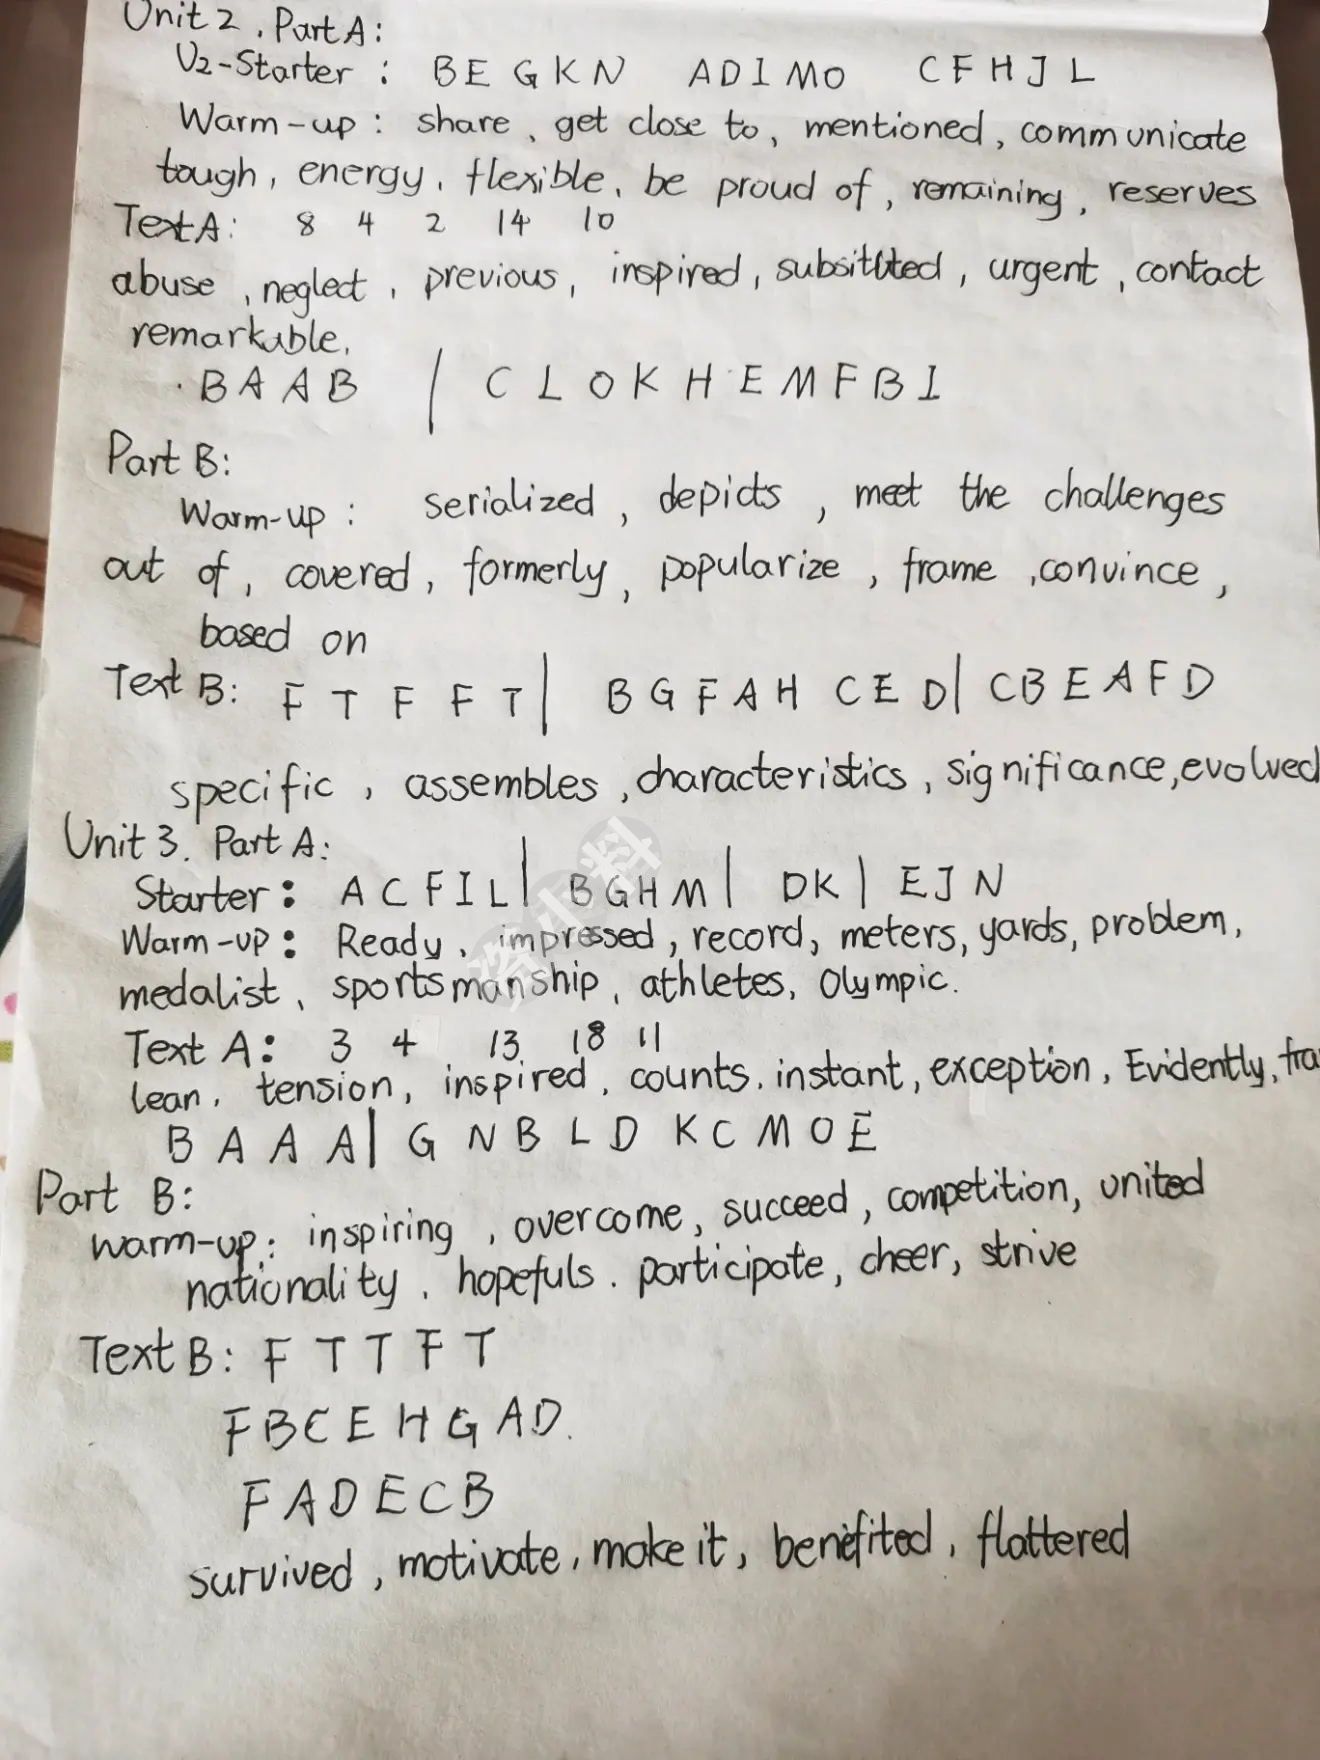 Unit 2 . Part A:
U2-Starter : BEGKN ADIMO CFHJL
Warm-up : share 、get close to、mentioned, communicate
tough, energy, flexible、be proud of, remaining, reserves
Text A: 8 4 2 14 10
abuse , neglect , previous, inspired, , urgent , contact
remarkable.
. B A A B | C L O K H E M F B I
Part B:
Warm-up : serialized , depicts , meet the challenges
out of, covered, formerly, popularize , frame ,convince ,
based on
Text B: F T F F T | B G F A H C E D | C B E A F D
specific , assembles ,characteristics , significance,evolved
Unit 3. Part A:
Starter: A C F I L | B G H M | D K | E J N
Warm-up: Ready、impressed, record, meters, yards, problem,
medalist、sportsmanship, athletes, Olympic.
Text A: 3 4 13 18 11
lean, tension, inspired, counts. instant, exception, Evidently, fra
B A A A | G N B L D K C M O E
Part B:
warm-up: inspiring , overcome, succeed, competition, united
nationality . hopefuls . participate, cheer, strive
Text B: F T T F T
F B C E H G A D.
F A D E C B
survived , motivate, make it, benefited , flattered
资小料